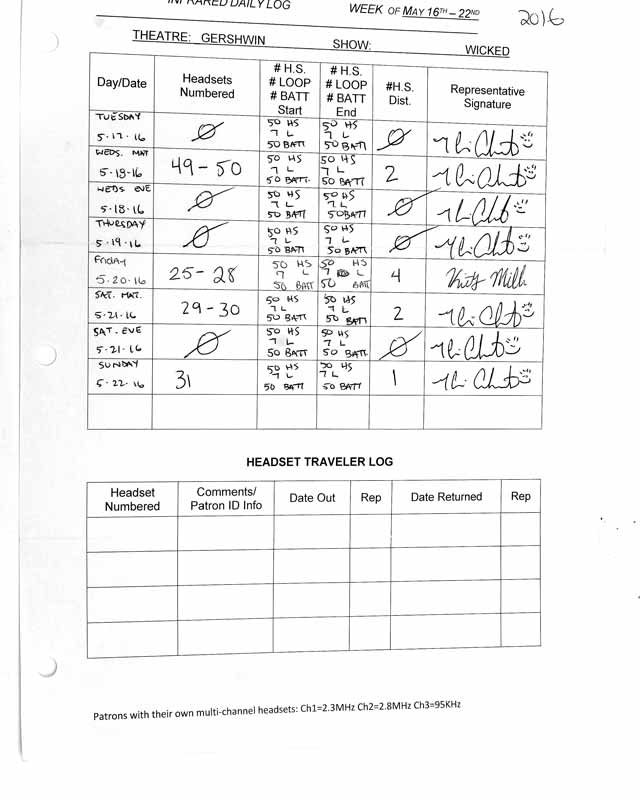 INFRARED DAILY LOG WEEK OF MAY 16TH – 22ND 2016
THEATRE: GERSHWIN SHOW: WICKED
Day/Date Headsets Numbered # H.S. # LOOP # BATT Start # H.S. # LOOP # BATT End #H.S. Dist. Representative Signature
TUESDAY 5-17-16 Ø 50 HS 7 L 50 BATT 50 HS 7 L 50 BATT Ø
WEDS. MAT 5-18-16 49-50 50 HS 7 L 50 BATT. 50 HS 7 L 50 BATT 2
WEDS EVE 5-18-16 Ø 50 HS 7 L 50 BATT 50 HS 7 L 50 BATT Ø
THURSDAY 5-19-16 Ø 50 HS 7 L 50 BATT 50 HS 7 L 50 BATT Ø
FRIDAY 5-20-16 25-28 50 HS 7 L 50 BATT 50 HS 7 L 50 BATT 4
SAT. MAT. 5-21-16 29-30 50 HS 7 L 50 BATT 50 HS 7 L 50 BATT. 2
SAT. EVE 5-21-16 Ø 50 HS 7 L 50 BATT 50 HS 7 L 50 BATT. Ø
SUNDAY 5-22-16 31 50 HS 7 L 50 BATT 50 HS 7 L 50 BATT 1
HEADSET TRAVELER LOG
Headset Numbered Comments/ Patron ID Info Date Out Rep Date Returned Rep
Patrons with their own multi-channel headsets: Ch1=2.3MHz Ch2=2.8MHz Ch3=95KHz